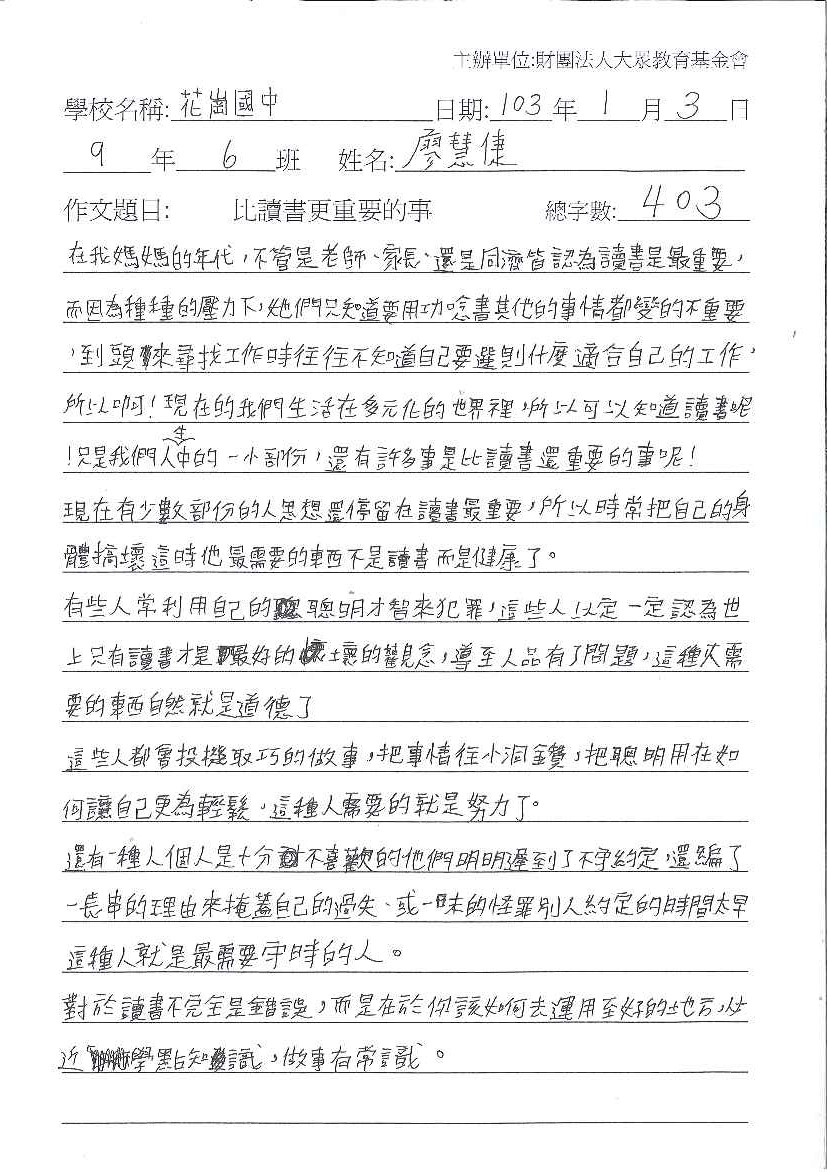 主辦單位:財團法人大眾教育基金會
學校名稱: 花崗國中 日期: 103 年 1 月 3 日
9 年 6 班 姓名: 廖慧倢
作文題目: 比讀書更重要的事 總字數: 403
在我媽媽的年代，不管是老師、家長、還是同濟皆認為讀書是最重要，
而因為種種的壓力下，她們只知道要用功唸書其他的事情都變的不重要
，到頭來尋找工作時往往不知道自己要選則什麼適合自己的工作，
所以叩可！現在的我們生活在多元化的世界裡，所以可以知道讀書呢
！只是我們人生中的一小部份，還有許多事是比讀書還重要的事呢！
現在有少數部份的人思想還停留在讀書最重要，所以時常把自己的身
體搞壞這時他最需要的東西不是讀書而是健康了。
有些人常利用自己的聰明才智來犯罪，這些人以定一定認為世
上只有讀書才是最好的壞的觀念，導至人品有了問題，這種人需
要的東西自然就是道德了
這些人都會投機取巧的做事，把事情往小洞鑽，把聰明用在如
何讓自己更為輕鬆，這種人需要的就是努力了。
還有一種人個人是十分不喜歡的他們明明遲到了不守約定，還編了
一長串的理由來掩蓋自己的過失、或一味的怪罪別人約定的時間太早
這種人就是最需要守時的人。
對於讀書不完全是錯誤，而是在於你該如何去運用至好的地方，
近 學點知識，做事有常識。